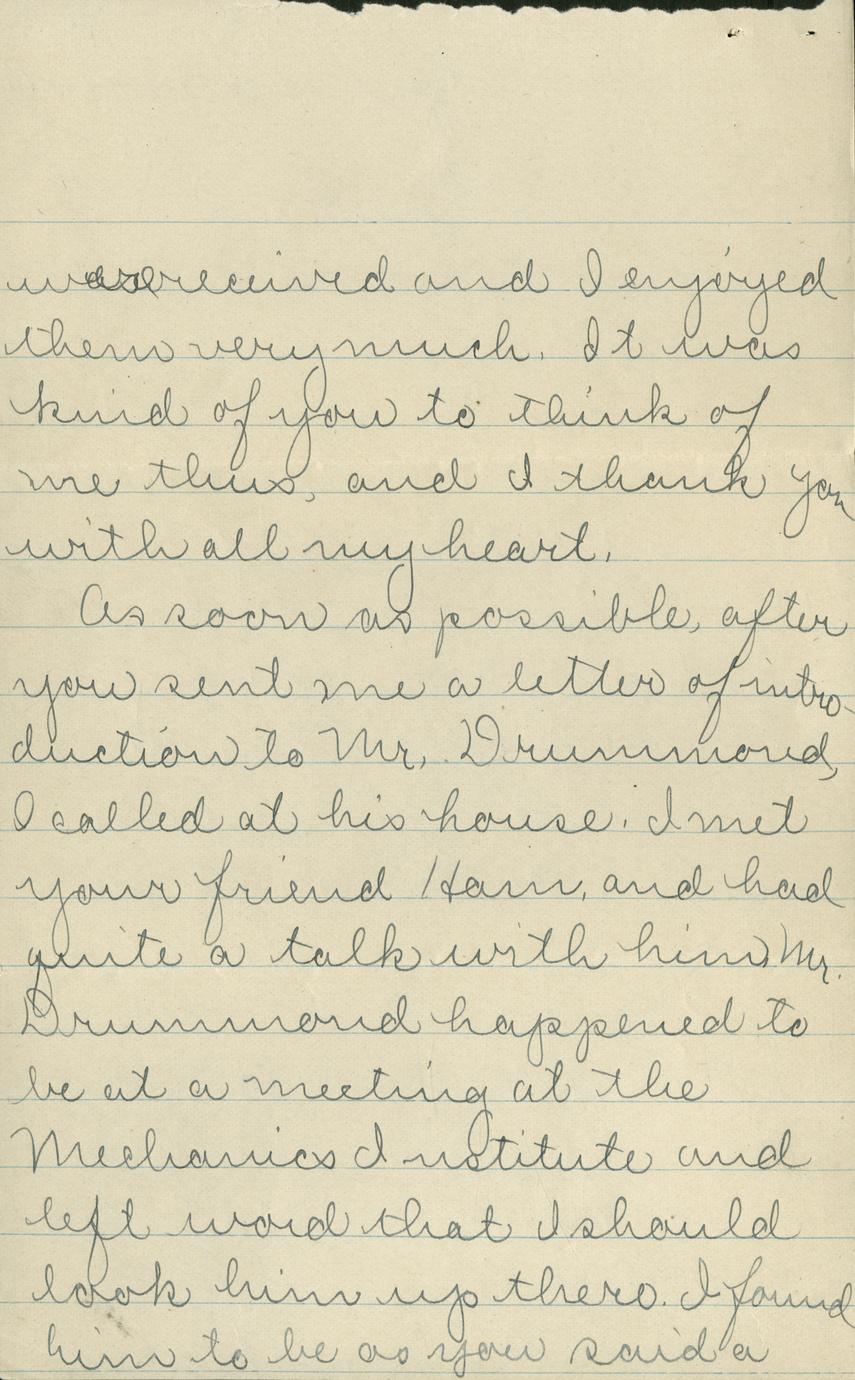 were received and I enjoyed
them very much. It was
kind of you to think of
me thus, and I thank you
with all my heart.
As soon as possible, after
you sent me a letter of intro-
duction to Mr. Drummond,
I called at his house. I met
your friend Ham, and had
quite a talk with him, Mr.
Drummond happened to
be at a meeting at the
Mechanics Institute and
left word that I should
look him up there. I found
him to be as you said a